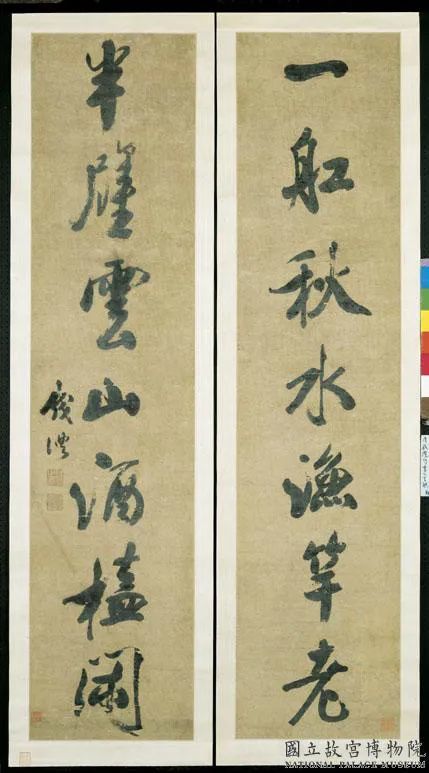 一舡秋水漁竿老
半壁雲山酒榼
錢灃
國立故宮博物院
NATIONAL PALACE MUSEUM